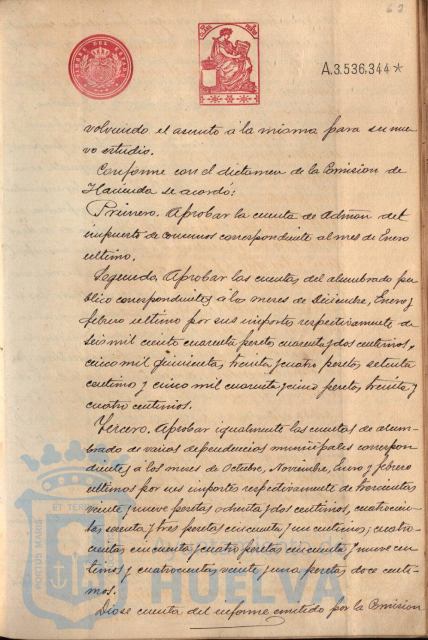 A.3.536,344*
volviendo el asunto á la misma para su nue
vo estudio.
Conforme con el dictamen de la Comision de
Hacienda se acordó:
Primero. Aprobar la cuenta de Admon del
impuesto de consumos correspondiente al mes de Enero
ultimo.
Segundo. Aprobar las cuentas del alumbrado pu
blico correspondientes á los meses de Diciembre, Enero y
febrero ultimo por sus importes respectivamente de
seis mil ciento cuarenta pesetas cuarenta y dos centimos,
cinco mil quinientas treinta y cuatro pesetas setenta
centimos y cinco mil cuarenta y cinco pesetas treinta y
cuatro centimos.
Tercero. Aprobar igualmente las cuentas de alum-
brado de varias dependencias municipales correspon
dientes á los meses de Octubre, Noviembre, Enero y febrero
ultimos por sus importes respectivamente de trescientas
veinte y nueve pesetas ochenta y dos centimos, cuatrocien
tas y tres pesetas cincuenta y un centimos; cuatro-
cientas cincuenta y cuatro pesetas cincuenta y nueve cen
timos y cuatrocientas veinte y una pesetas doce centi-
mos.
Diose cuenta del informe emitido por la Comision
PORTUS MARIS
ET TERR
Ayuntamiento de
HUELVA